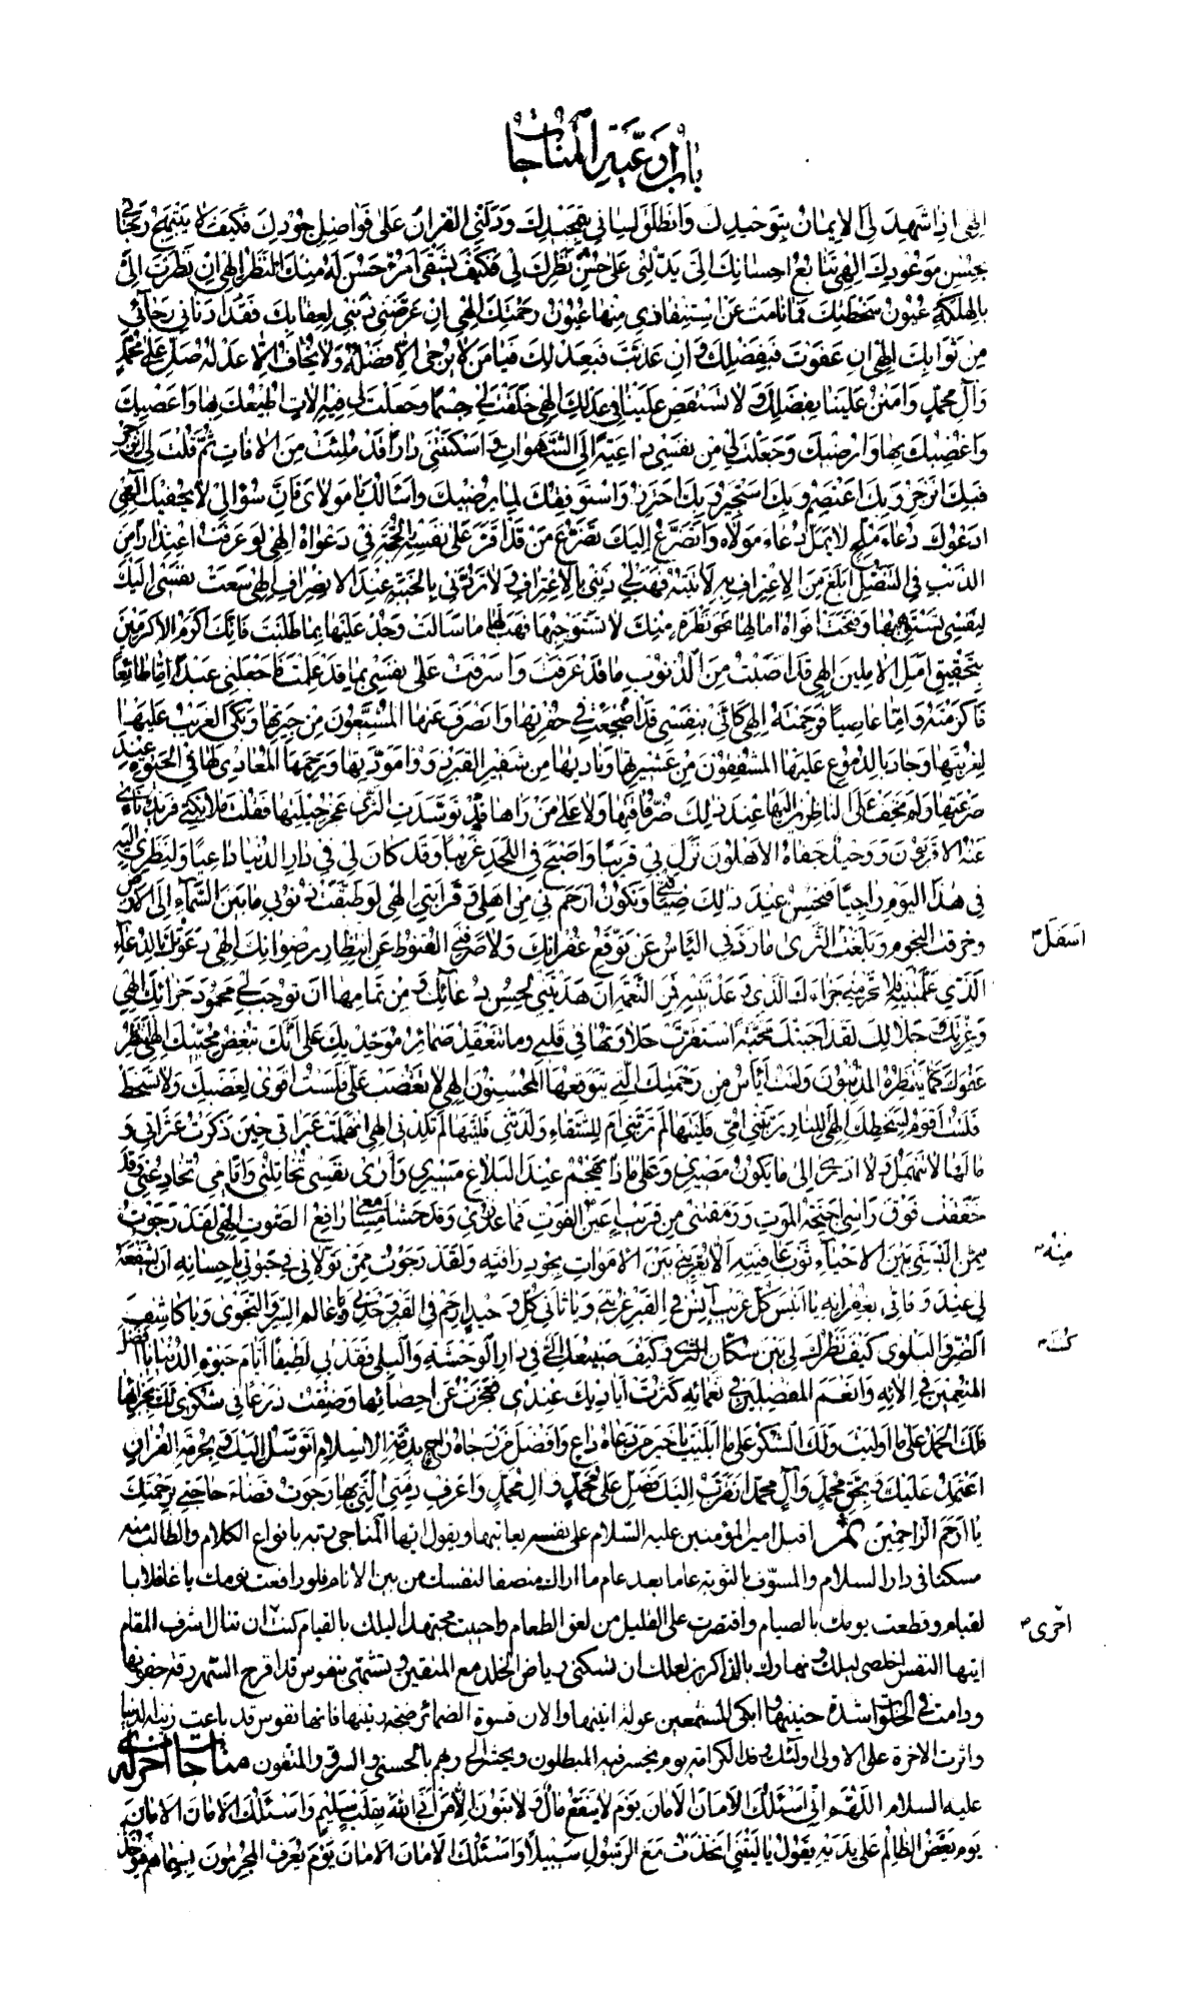 باب ادعية المناجات
الهي اذا شهد لي الايمان بتوحيدك وانطلق لساني بتمجيدك ودلني القران على فواضل جودك فكيف لا يبتهج رجائي
بحسن موعودك الهي تتابع احسانك الي يدلني على حسن نظرك لي فكيف يشقى امرؤ حسن له منك النظر الهي ان نظرت الي
بالهلكة عيون سخطك فما نامت عن استنقاذي منها عيون رحمتك الهي ان عرضني ذنبي لعقابك فقد ادناني رجائي
من ثوابك الهي ان عفوت فبفضلك وان عذبت فبعدلك فيا من لا يرجى الا فضله ولا يخاف الا عدله صل على محمد
وآل محمد وامنن علينا بفضلك ولا تستقص علينا في عدلك الهي خلقت لي جسما وجعلت لي فيه الات اطيعك بها واعصيك
واغضبك بها وارضيك وجعلت لي من نفسي داعية الى الشهوات واسكنتني دارا قد ملئت من الافات ثم قلت لي انزجر
فبك انزجر وبك اعتصم وبك استجير وبك احترز واستوفقك لما يرضيك واسألك يا مولاي فان سؤالي لا يحفيك الهي
ادعوك دعاء ملح لا يمل دعاء مولاه واتضرع اليك تضرع من قد اقر على نفسه بالحجة في دعواه الهي لو عرفت اعتذارا من
الذنب في التنصل ابلغ من الاعتراف به لاتيته فهب لي ذنبي بالاعتراف ولا تردني بالخيبة عند الانصراف الهي سعت نفسي اليك
لنفسي تستوهبها وفتحت افواه امالها نحو نظرة منك لا تستوجبها فهب لها ما سالت وجد عليها بما طلبت فانك اكرم الاكرمين
بتحقيق امل الاملين الهي قد اصبت من الذنوب ما قد عرفت واسرفت على نفسي بما قد علمت فاجعلني عبدا اما طائعا
فاكرمته واما عاصيا فرحمته الهي كاني بنفسي قد اضجعت في حفرتها وانصرف عنها المشيعون من جيرتها وبكى الغريب عليها
لغربتها وجاد بالدموع عليها المشفقون من عشيرتها وناداها من شفير القبر ذووا مودتها ورحمها المعادي لها في الحيوة عند
صرعتها ولم يخف على الناظرين اليها عند ذلك ضر فاقتها ولا على من راها قد توسدت الثرى عجز حيلتها فقلت ملائكتي فريد نأى
عنه الاقربون ووحيد جفاه الاهلون نزل بي قريبا واصبح في اللحد غريبا وقد كان لي في دار الدنيا داعيا ولنظري اليه
في هذا اليوم راجيا فتحسن عند ذلك ضيافتي وتكون ارحم بي من اهلي وقرابتي الهي لو طبقت ذنوبي ما بين السماء الى الارض
وخرقت النجوم وبلغت الثرى ما ردني الياس عن توقع غفرانك ولا صرفني القنوط عن انتظار رضوانك الهي دعوتك بالدعاء
اسفل
الذي علمتنيه فلا تحرمني جزاءك الذي وعدتنيه فمن النعمة ان هديتني لحسن دعائك ومن تمامها ان توجب لي محمود جزائك الهي
وعزتك وجلالك لقد احببتك محبة استقرت حلاوتها في قلبي وما تنعقد ضمائر موحديك على انك تبغض محبيك الهي انتظر
عفوك كما ينتظره المذنبون ولست اياس من رحمتك التي يتوقعها المحسنون الهي لا تغضب علي فلست اقوى لغضبك ولا تسخط
فلست اقوم لسخطك الهي اللنار ربتني امي فليتها لم تربني ام للشقاء ولدتني فليتها لم تلدني الهي انهملت عبراتي حين ذكرت عثراتي و
ما لها لا تنهمل ولا ادري الى ما يكون مصيري وعلى ماذا يهجم عند البلاغ مسيري وارى نفسي تخاتلني وايامي تخادعني وقد
خفقت فوق راسي اجنحة الموت ورمقتني من قريب اعين الفوت فما عذري وقد حشا مسامعي رافع الصوت الهي لقد رجوت
ممن البسني بين الاحياء ثوب عافيته الا يعريني بين الاموات بجود رافته ولقد رجوت ممن تولاني في حيوتي باحسانه ان يشفعه
منه
لي عند وفاتي بغفرانه يا انيس كل غريب آنس في القبر غربتي ويا ثاني كل وحيد ارحم في القبر وحدتي ويا عالم السر والنجوى ويا كاشف
الضر والبلوى كيف نظرك لي بين سكان الثرى وكيف صنيعك الي في دار الوحشة والبلى فقد بي لطيفا ايام حيوة الدنيا يا افضل
كنت
المنعمين في الائه وانعم المفضلين في نعمائه كثرت اياديك عندي فعجزت عن احصائها وضقت ذرعا في شكري لك بجزائها
فلك الحمد على ما اوليت ولك الشكر على ما ابليت يا خير من دعاه داع وافضل من رجاه راج بذمة الاسلام اتوسل اليك وبحرمة القران
اعتمد عليك وبحق محمد وآل محمد اتقرب اليك فصل على محمد وال محمد واعرف ذمتي التي بها رجوت قضاء حاجتي برحمتك
يا ارحم الراحمين ثم اقبل امير المؤمنين عليه السلام على نفسه يعاتبها ويقول ايها المناجي ربه بانواع الكلام والطالب منه
مسكنا في دار السلام والمسوف بالتوبة عاما بعد عام ما اراك منصفا لنفسك من بين الانام فلو رافعت نومك يا غافلا با
لقيام وقطعت يومك بالصيام واقتصرت على القليل من لعق الطعام واحييت مجتهدا ليلك بالقيام كنت ان تنال اشرف المقام
اخرى
ايتها النفس اخلصي ليلك ونهارك بالذاكرين لعلك ان تسكني رياض الخلد مع المتقين وتشبهي بنفوس قد اقرح السهر رقة جفونها
ودامت في الخلوات شدة حنينها وابكى المستمعين عولة انينها والان قسوة الضمائر ضجة رنينها فانها نفوس قد باعت زينة الدنيا
واثرت الاخرة على الاولى اولئك وفد الكرامة يوم يخسر فيه المبطلون ويحشر الى ربهم بالحسنى والسرور المتقون مناجات اخرى له
عليه السلام اللهم اني اسئلك الامان الامان يوم لا ينفع مال ولا بنون الا من اتى الله بقلب سليم واسئلك الامان الامان
يوم يعض الظالم على يديه يقول يا ليتني اتخذت مع الرسول سبيلا واسئلك الامان الامان يوم يعرف المجرمون بسيماهم فيؤخذ